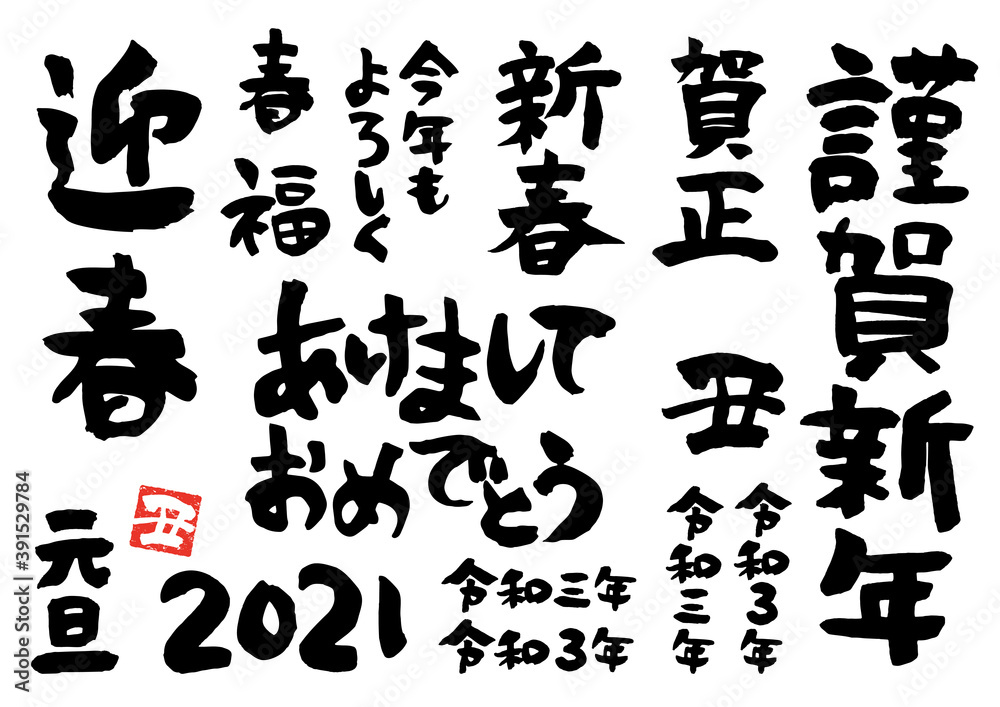 謹賀新年
賀正
丑
令和3年
令和三年
新春
今年も
よろしく
春
福
あけまして
おめでとう
令和三年
令和3年
迎春
丑
元旦
2021
Adobe Stock
#391529784